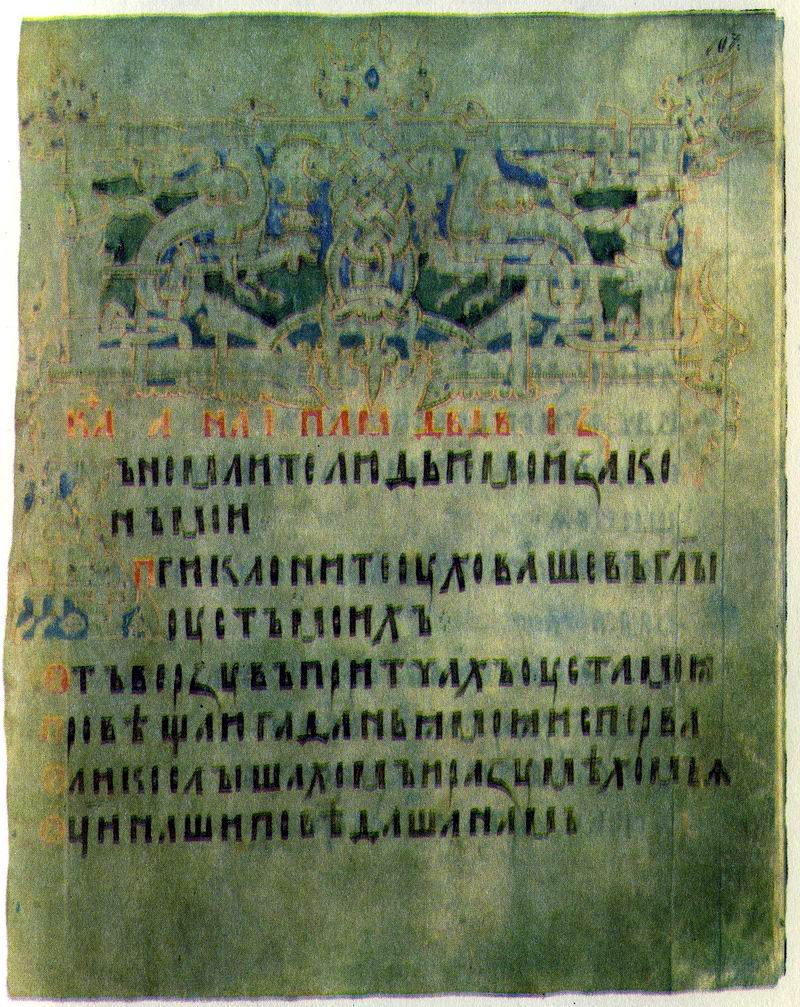 107.
ънемлите людье мои зако
нъ мои
Приклоните оухо ваше въ глъі
оустъ моихъ
Отъверзу въ притчахъ оуста моя
провѣщаи гаданьи мои исперва
Олико слъішахомъ и разумѣхомъ ꙗ
Оци наши повѣдаша намъ